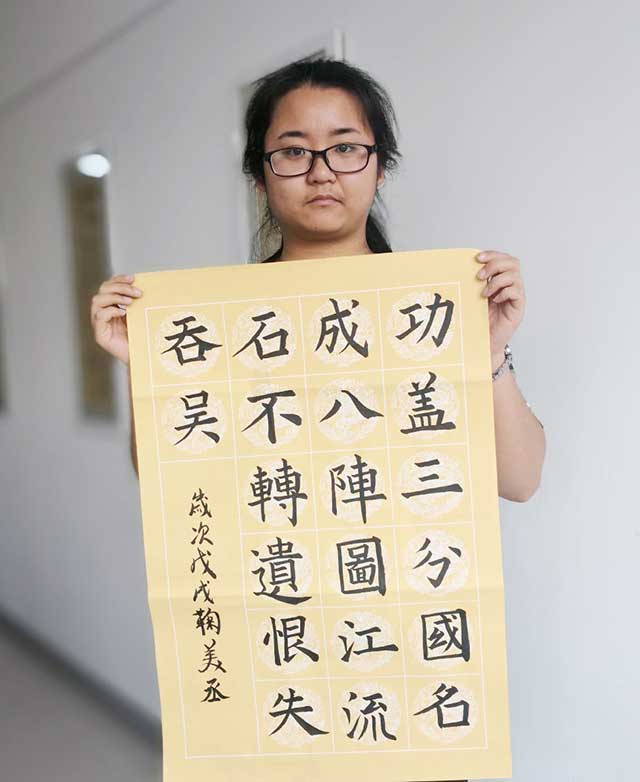 功盖三分國名
成八陣圖江流
石不轉遺恨失
吞吴
歳次戊戌鞠美丞